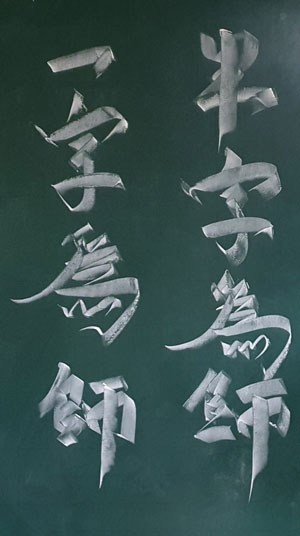 半字為師
一字為師